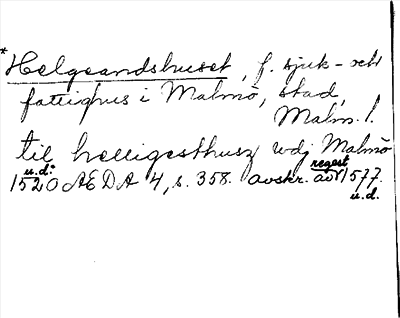 *Helgeandshuset, f. sjuk- och
fattighus i Malmö, stad,
Malm. l.
til helligesthusz wdj Malmö
u.d. regest
1520 AEDA 4, s. 358. avskr. av 1577.
u.d.